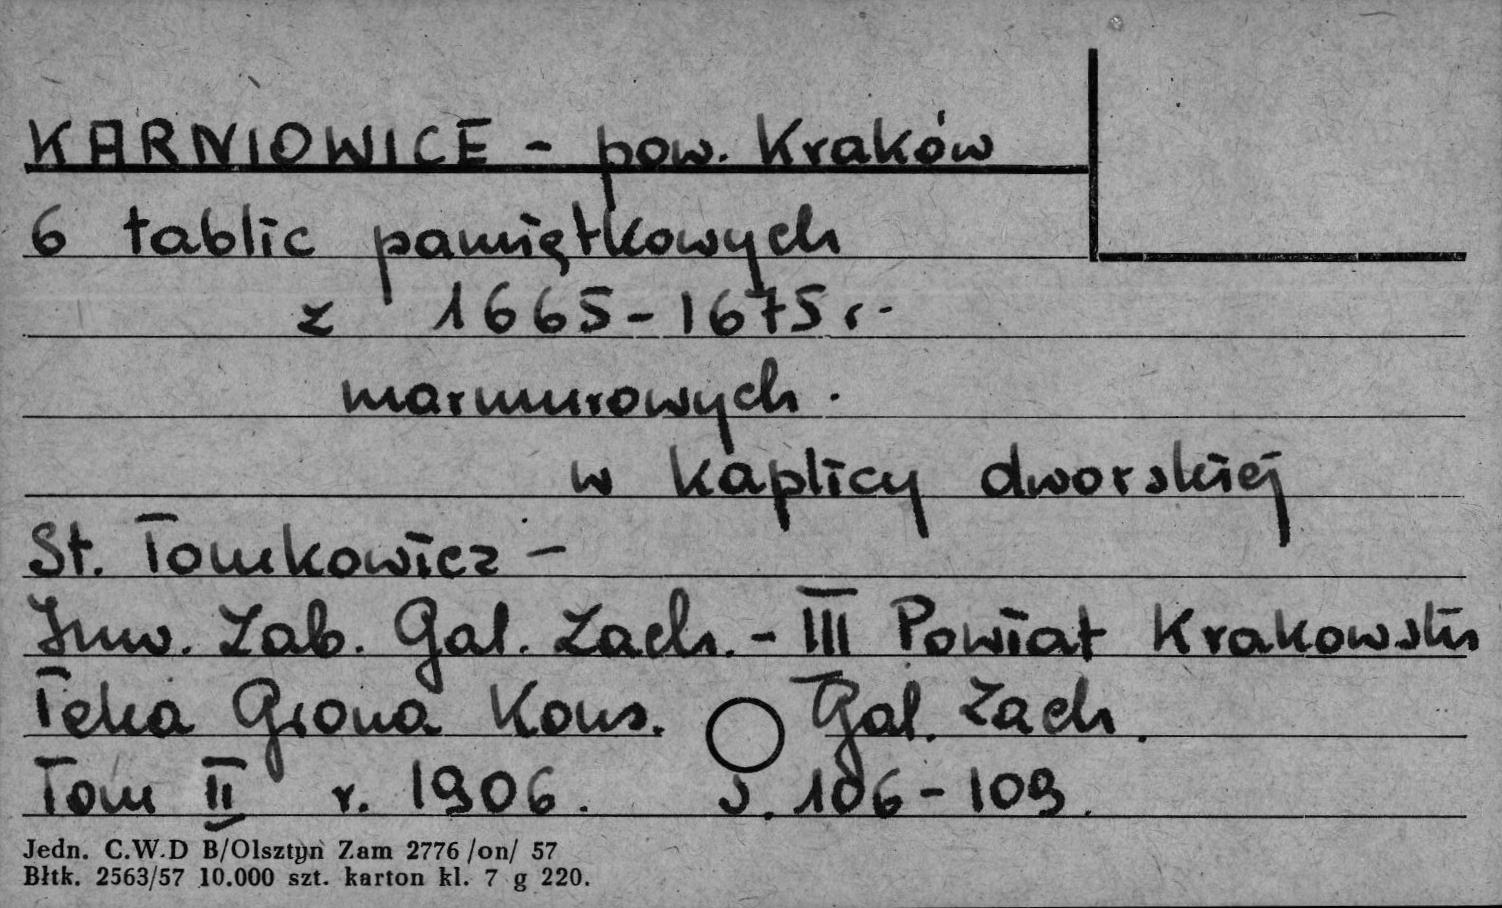 KARNIOWICE - pow. Kraków
6 tablic pamiątkowych
z 1665-1675 r.
marmurowych.
w kaplicy dworskiej
St. Tomkowicz -
Inw. Zab. Gal. Zach. - III Powiat Krakowski
Teka Grona Kons. Gal. Zach.
Tom II r. 1906. s. 106-109.
Jedn. C.W.D B/Olsztyn Zam 2776 /on/ 57
Błtk. 2563/57 10.000 szt. karton kl. 7 g 220.